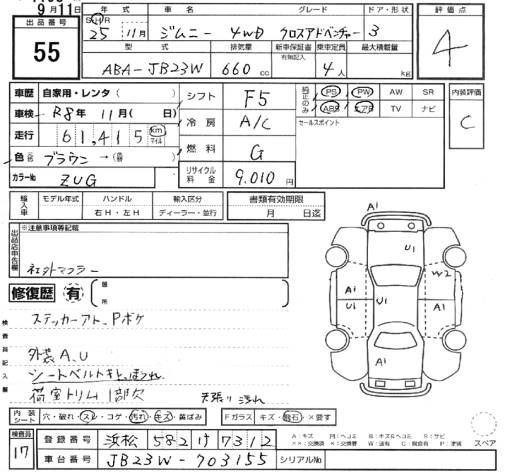 9月11日
出品店番号
55
年式 車名 グレード ドア・形状
S・H・R 25年 11月 ジムニー 4WD クロスアドベンチャー 3
型式 排気量 新車保証書 乗車定員 最大積載量
有無記入
ABA-JB23W 660 cc 4人 kg
評価点
4
車歴 自家用・レンタ( )
車検 R8年 11月( 日)
走行 61,415 km マイル
色 ブラウン →
カラーNo ZUG
シフト F5
冷房 A/C
燃料 G
リサイクル料金 9,010円
純正のみ PS PW AW SR
ABS エアB TV ナビ
セールスポイント
内装評価
C
輸入車 モデル年式 ハンドル 輸入区分
年 右H・左H ディーラー・並行
書類有効期限
月 日迄
出品店申告欄
※注意事項等記載
社外マフラー
修復歴 有 箇所
検査員記入欄
ステッカーアト、Pボケ
外装A、U
シートベルトキレ、ほつれ
荷室トリム1部欠
天張り汚れ
A1
U1
A1 U1 U1 A1
W2
A1
内装シート 穴・破れ・スレ・コゲ・汚れ・キズ・黄ばみ
Fガラス キズ・飛石・×要す
検査員
17
登録番号 浜松 582 け 7312
車台番号 JB23W-703155 シリアルNo
A:キズ U:ヘコミ B:キズ&ヘコミ S:サビ
スペア